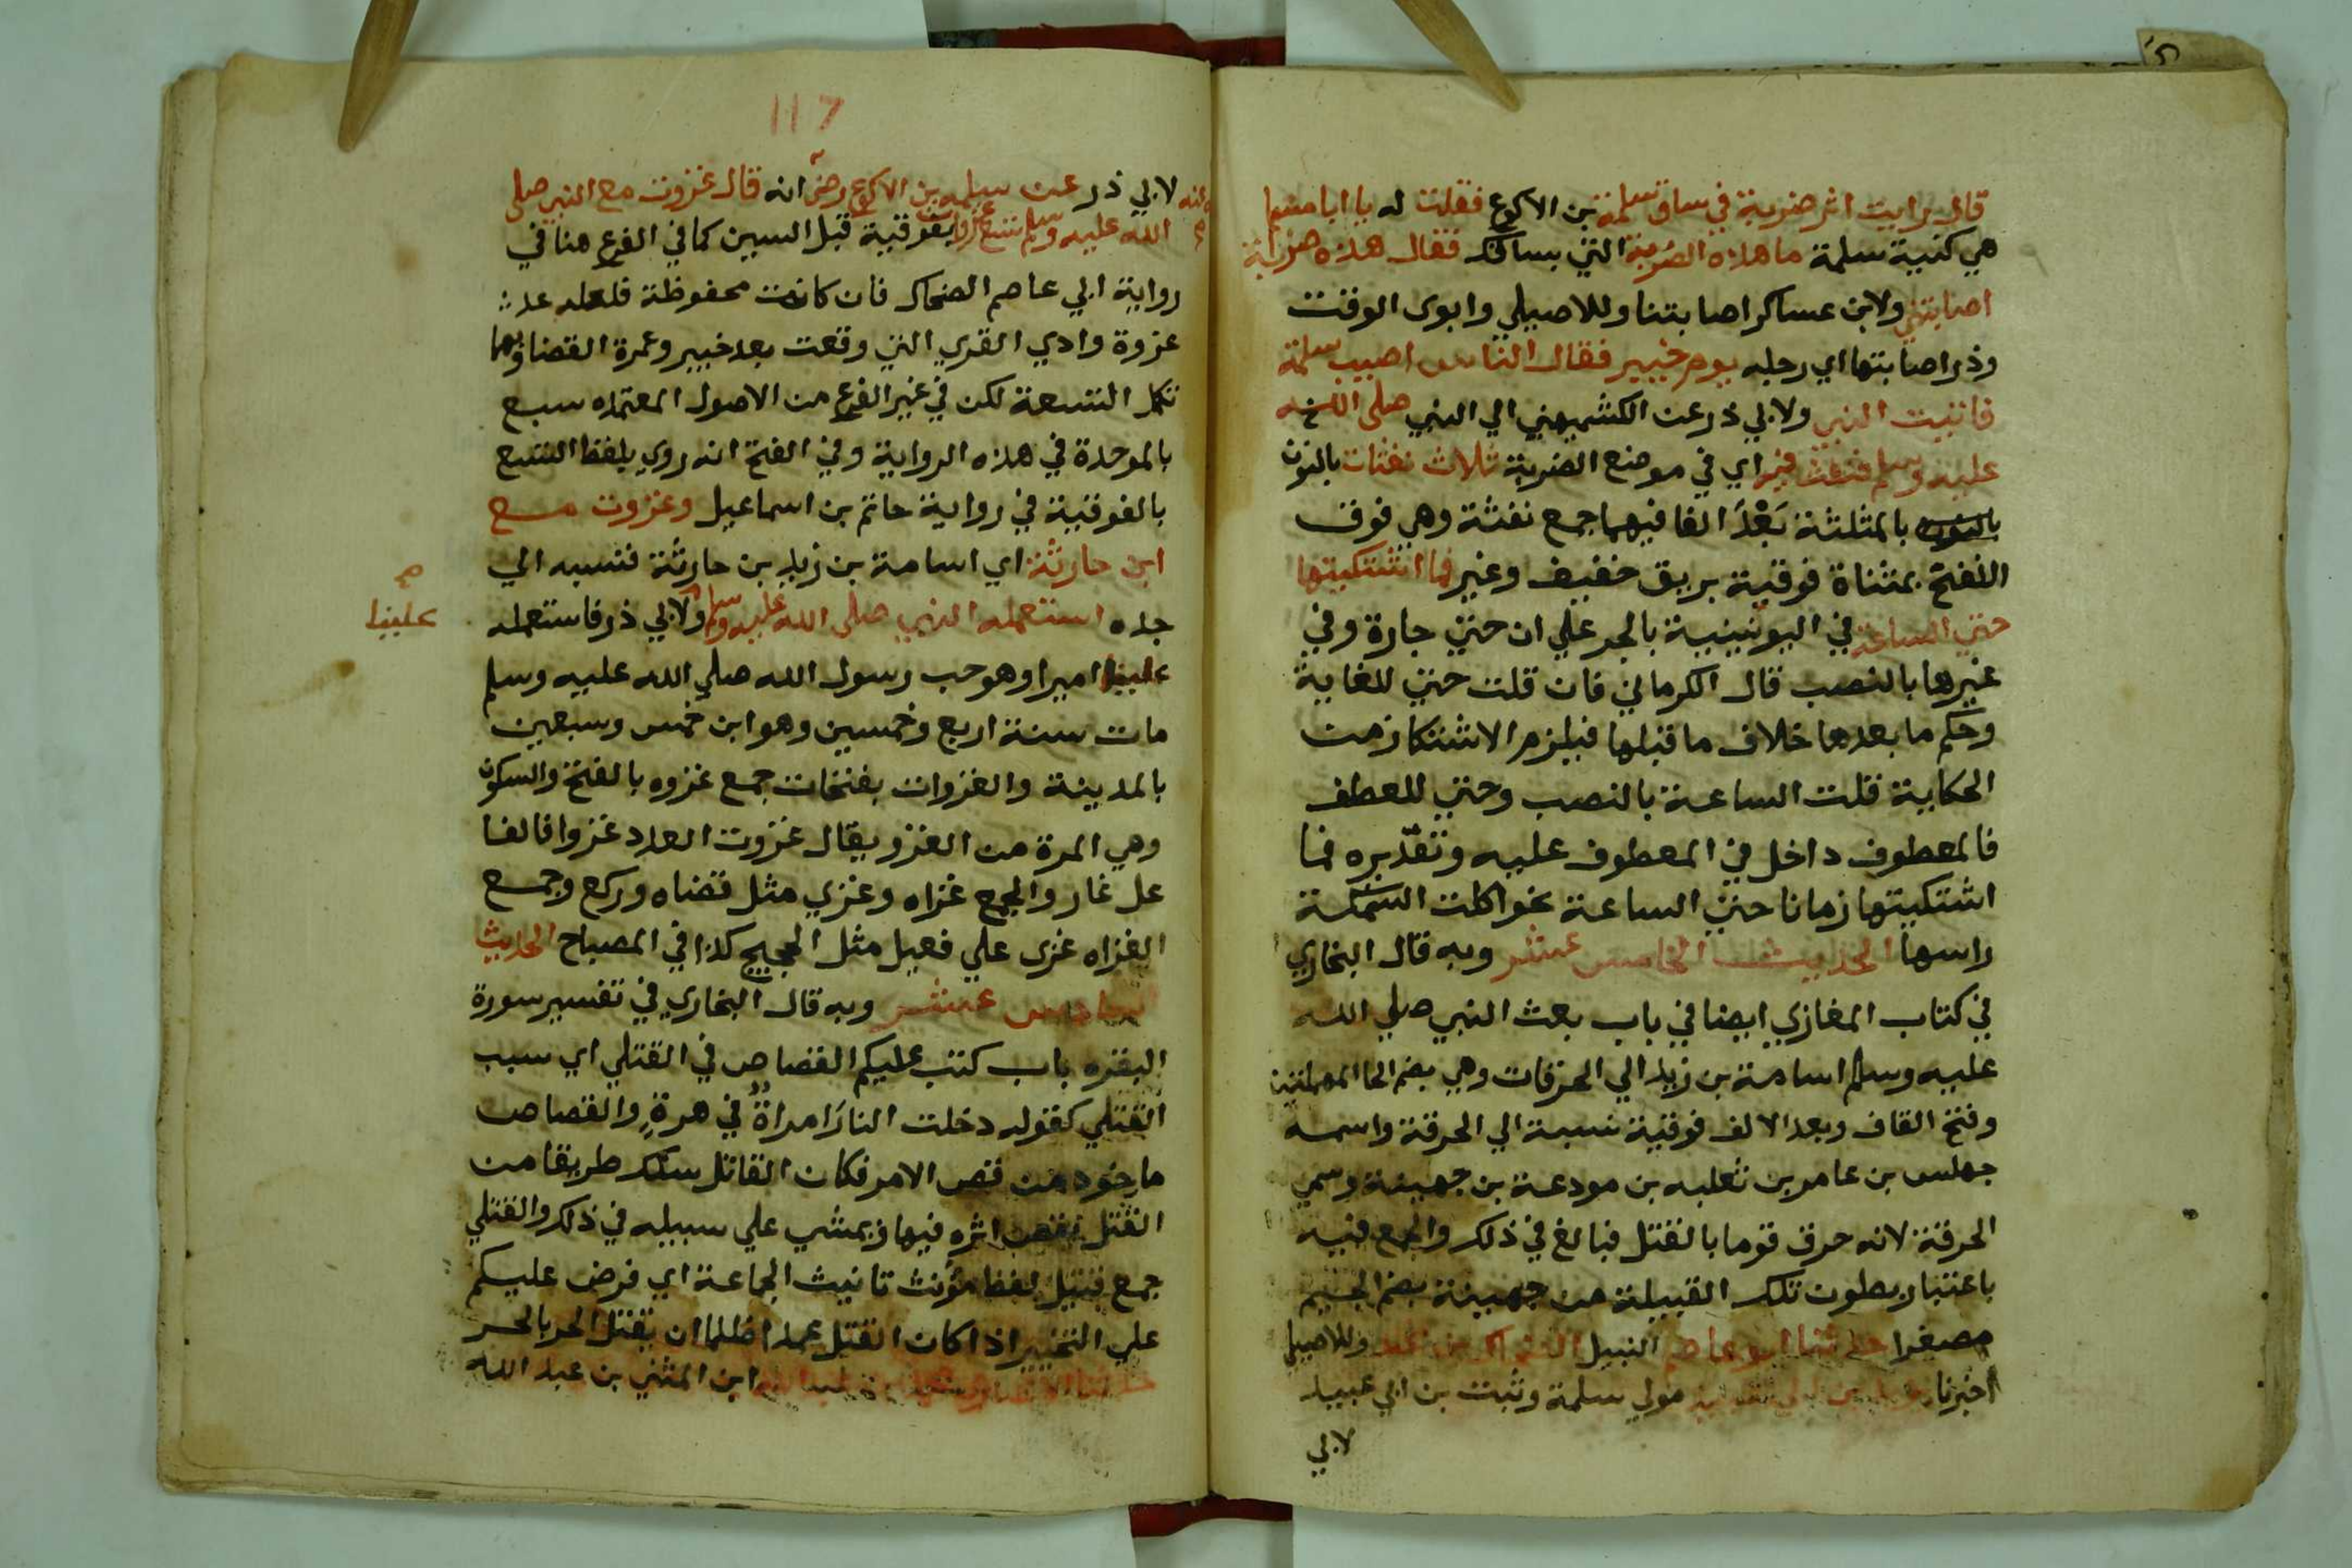 قال رايت اثر ضربة في ساق سلمة بن الاكوع فقلت له يا ابا مسلم
هي كنية سلمة ما هذه الضربة التي بساقك فقال هذه ضربة
اصابتني ولابن عساكر اصابتنا وللاصيلي وابوى الوقت
وذر اصابتها اي رجله يوم خيبر فقال الناس اصيب سلمة
فاتيت النبي ولابي ذر عن الكشميهني الي النبي صلى الله
عليه وسلم فنفث فيه اي في موضع الضربة ثلاث نفثات بالنون
بالمثلثة بَعْدَ الفا فيهما جمع نفثة وهي فوق
النفخ بمثناة فوقية بريق خفيف وغيره فما اشتكيتها
حتي الساعة في اليونينية بالجر علي ان حتي جارة وفي
غيرها بالنصب قال الكرماني فان قلت حتي للغاية
وحكم ما بعدها خلاف ما قبلها فيلزم الاشتكا زمن
الحكاية قلت الساعة بالنصب وحتي للعطف
فالمعطوف داخل في المعطوف عليه وتقديره فما
اشتكيتها زمانا حتي الساعة نحو اكلت السمكة
راسها الحديث الخامس عشر وبه قال البخاري
في كتاب المغازي ايضا في باب بعث النبي صلي الله
عليه وسلم اسامة بن زيد الي الحرقات وهي بضم الحا المهملتين
وفتح القاف وبعد الالف فوقية نسبة الي الحرقة واسمه
جهلس بن عامر بن ثعلبه بن مودعة بن جهينة وسمي
الحرقة لانه حرق قوما بالقتل فبالغ في ذلك والجمع فيه
باعتبار بطون تلك القبيلة من جهينة بضم الجيم
مصغرا حدثنا ابو عاصم النبيل الضحاك بن مخلد وللاصيلي
اخبرنا يزيد بن ابي عبيد مولي سلمة وثبت بن ابي عبيد
لابي
117
لابي ذر عن سلمه بن الاكوع رضي انه قال غزوت مع النبي صلى
الله عليه وسلم تسع غزوات بفوقية قبل السين كما في الفرع هنا في
رواية ابي عاصم الضحاك فان كانت محفوظة فلعله عد
غزوة وادي القري التي وقعت بعد خيبر وعمرة القضا وبهما
تكمل التسعة لكن في غير الفرع من الاصول المعتمده سبع
بالموحدة في هذه الرواية وفي الفتح انه روي بلفظ التسع
بالفوقية في رواية حاتم بن اسماعيل وغزوت مع
ابن حارثة اي اسامة بن زيد بن حارثة فنسبه الي
جده استعمله النبي صلى الله عليه وسلم ولابي ذر فاستعمله
صح
علينا
علينا اميرا وهو حب رسول الله صلي الله عليه وسلم
مات سنة اربع وخمسين وهو ابن خمس وسبعين
بالمدينة والغزوات بفتحات جمع غزوه بالفتح والسكون
وهي المرة من الغزو يقال غزوت العدد غزوا فالفا
عل غاز والجمع غزاه وغزي مثل قضاه وركع وجمع
الغزاه غزى علي فعيل مثل الحجيج كذا في المصباح الحديث
السادس عشر وبه قال البخاري في تفسير سورة
البقره باب كتب عليكم القصاص في القتلي اي سبب
القتلي كقوله دخلت النار امراة في هرة والقصاص
ماخوذ من قص الامر فكان القاتل سلك طريقا من
القتل يقص اثره فيها ويمشي علي سبيله في ذلك والقتلي
جمع قتيل لفظ مؤنث تانيث الجماعة اي فرض عليكم
علي التخيير اذا كان القتل عمدا ظلما ان يقتل الحر بالحر
حدثنا محمد بن عبد الله ابن المثني بن عبد الله